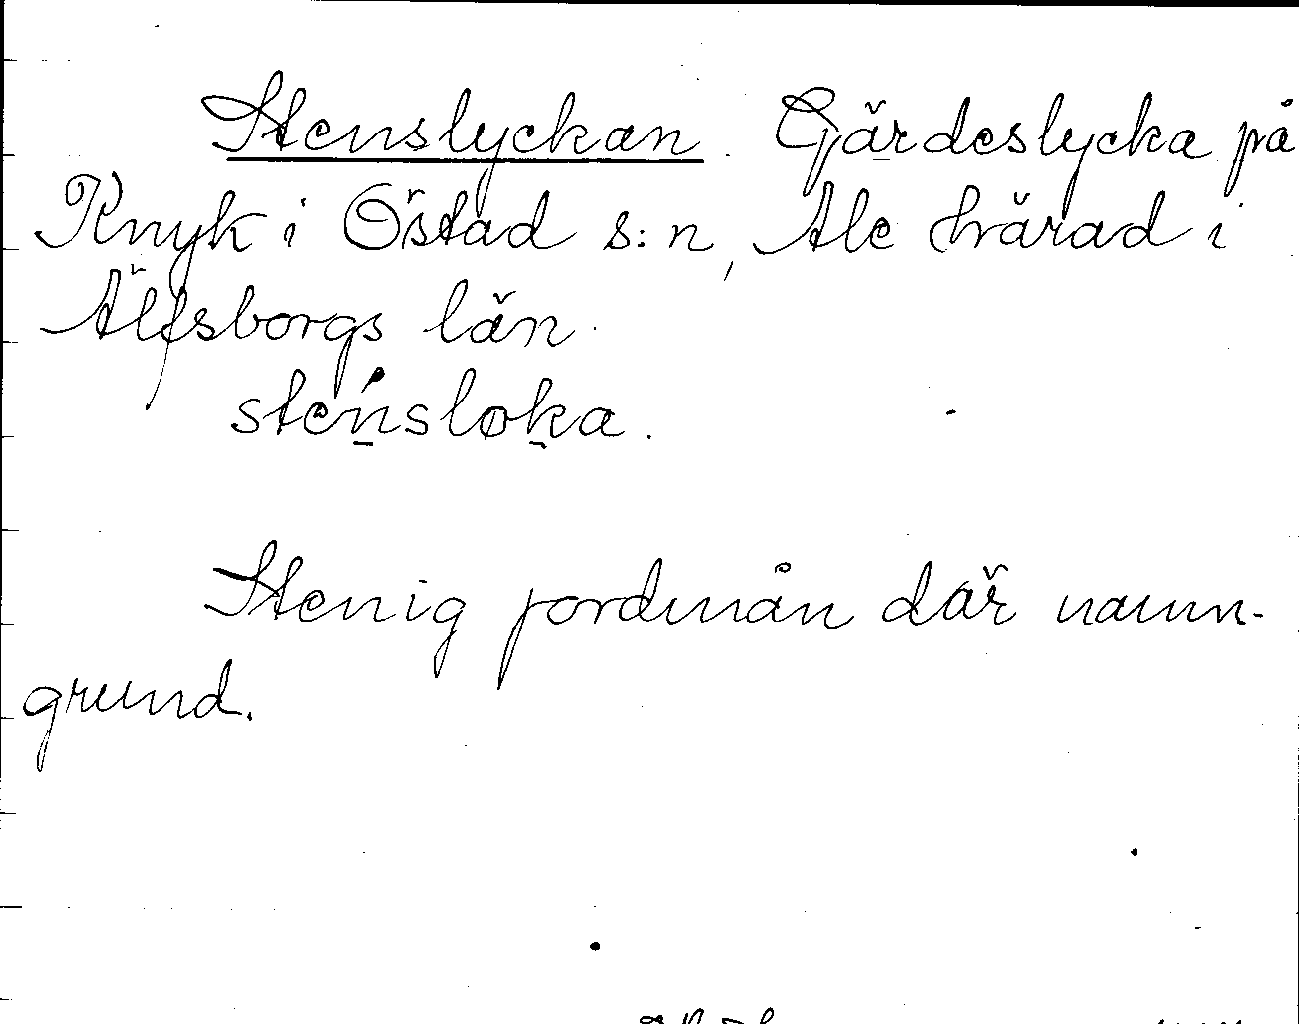 Stenslyckan. Gärdeslycka på
Knyk i Östad s:n, Ale härad i
Älfsborgs län.
steńsløka.
Stenig jordmån där namn-
grund.